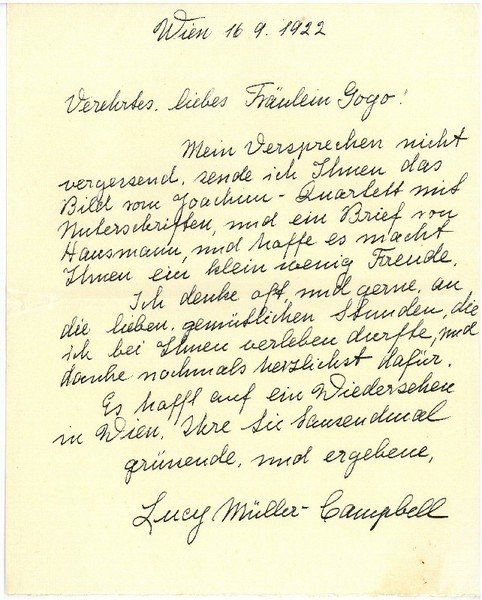 Wien 16 9. 1922
Verehrtes. liebes Fräulein Gogo!
Mein Versprechen nicht
vergessend, sende ich Ihnen das
Bild vom Joachim-Quartett mit
Unterschriften, und ein Brief von
Hausmann, und hoffe es macht
Ihnen ein klein wenig Freude.
Ich denke oft, und gerne, an
die lieben, gemütlichen Stunden, die
ich bei Ihnen verleben durfte, und
danke nochmals herzlichst dafür.
Es hofft auf ein Wiedersehen
in Wien, Ihre Sie tausendmal
grüssende, und ergebene,
Lucy Müller-Campbell